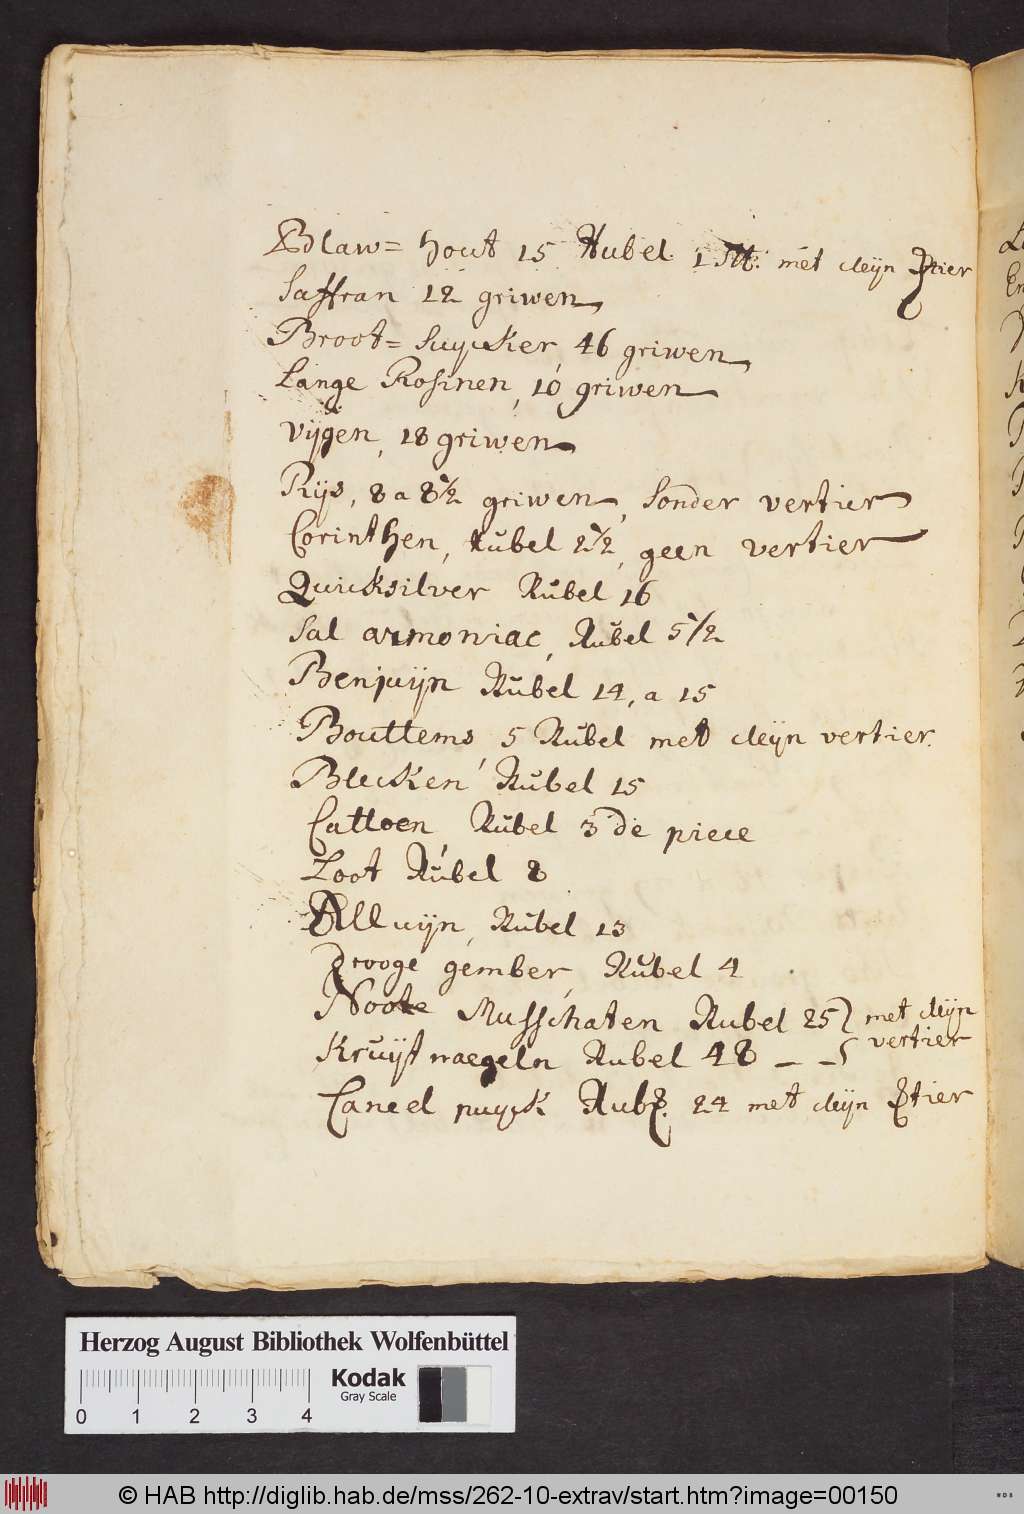 Blaw= hout 15 Rubel 1 met cleijn vertier
Saffran 12 griwen
Broot= Suycker, 46 griwen
Lange Rosinen, 10 griwen
Vijgen, 18 griwen
Rijs, 8 a 8 1/2 griwen, Sonder vertier
Corinthen, Rubel 2 1/2, geen vertier
Quicksilver Rubel 16
Sal armoniac, Rubel 5 1/2
Benjuijn Rubel 14, a 15
Bouttems 5 Rubel met cleijn vertier.
Blecken Rubel 15
Cattoen Rubel 3 de piece
Loot Rubel 8
Alluijn, Rubel 13
Drooge gember, Rubel 4
Noote Musschaten Rubel 25 met cleijn
Kruijt naegeln Rubel 48 – – vertier
Caneel puyck Rub. 24 met cleijn vertier
Herzog August Bibliothek Wolfenbüttel
Kodak
Gray Scale
0 1 2 3 4
© HAB http://diglib.hab.de/mss/262-10-extrav/start.htm?image=00150